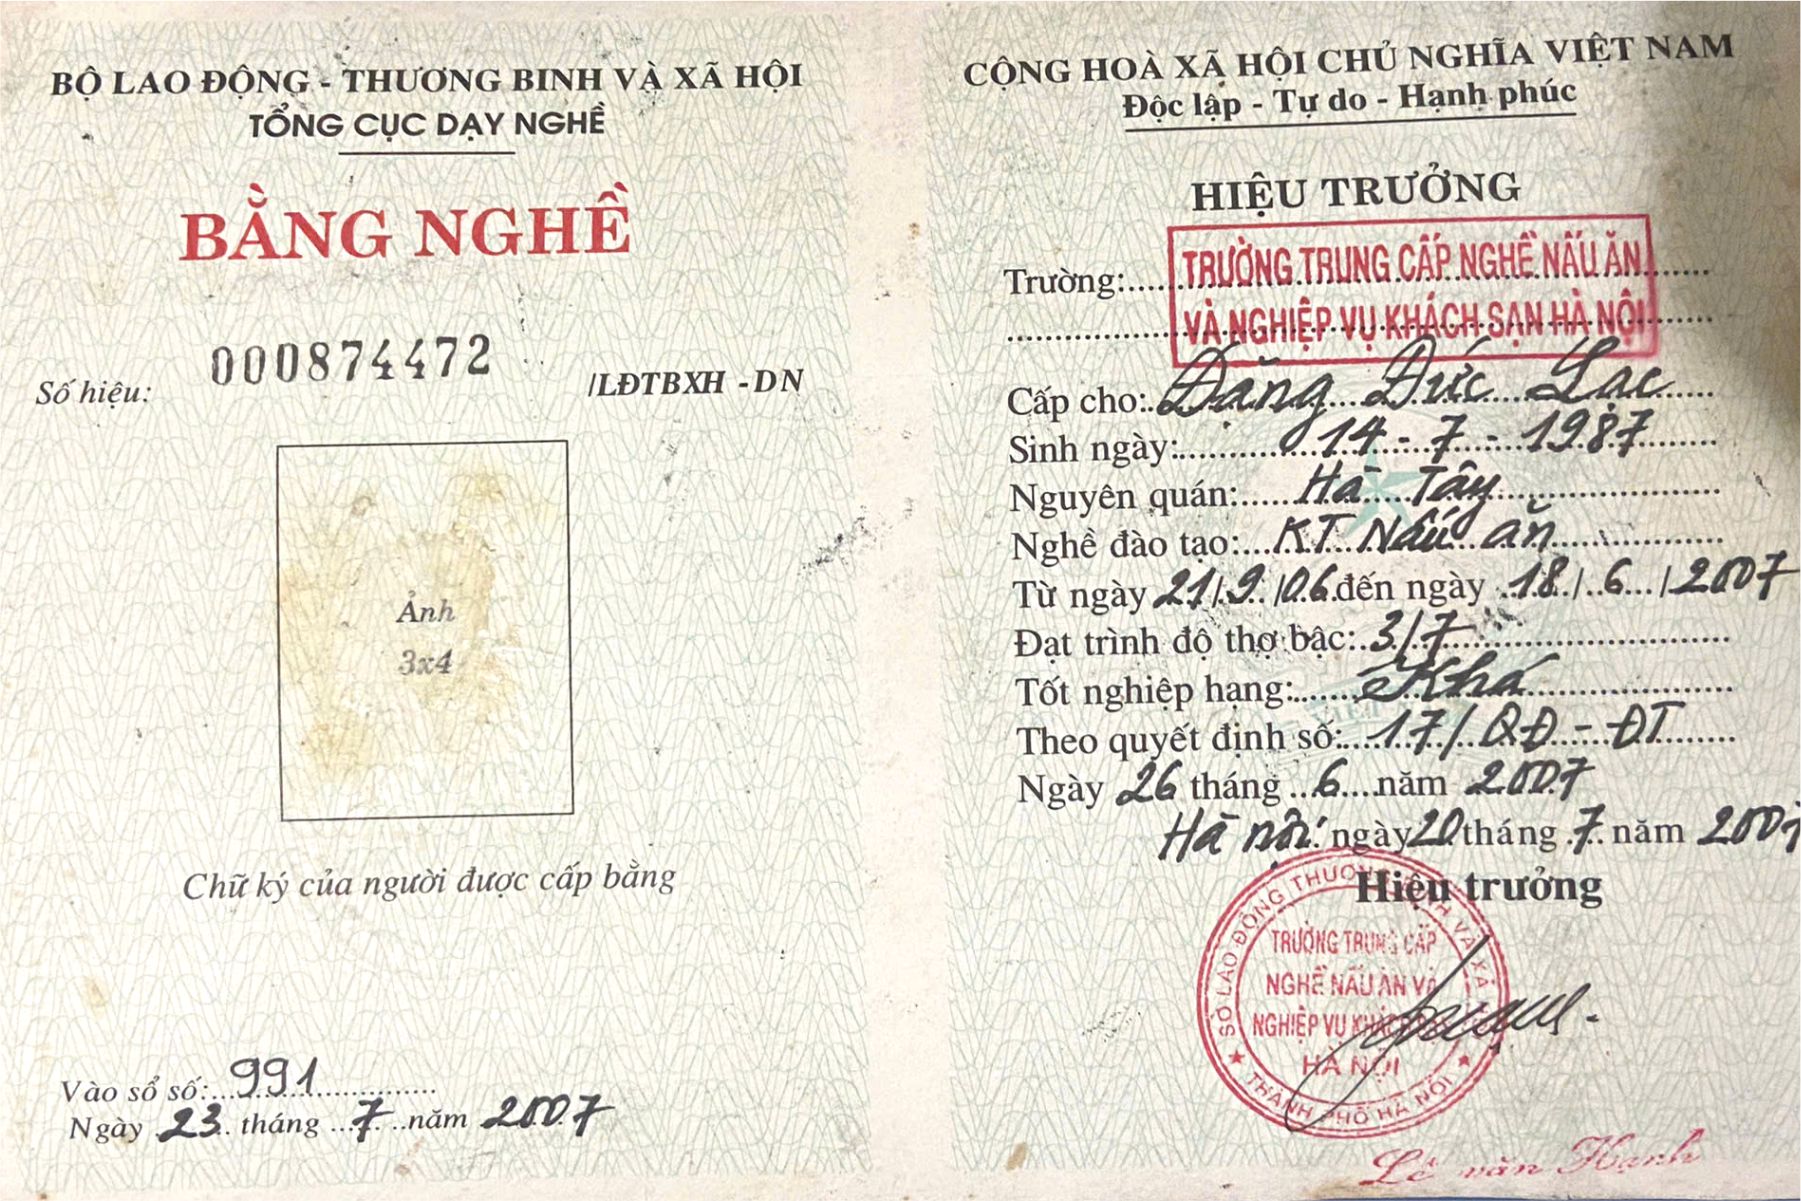 BỘ LAO ĐỘNG - THƯƠNG BINH VÀ XÃ HỘI
TỔNG CỤC DẠY NGHỀ
BẰNG NGHỀ
Số hiệu: 000874472 /LĐTBXH - DN
Ảnh
3x4
Chữ ký của người được cấp bằng
Vào sổ số: 991
Ngày 23 tháng 7 năm 2007
CỘNG HOÀ XÃ HỘI CHỦ NGHĨA VIỆT NAM
Độc lập - Tự do - Hạnh phúc
HIỆU TRƯỞNG
Trường: TRƯỜNG TRUNG CẤP NGHỀ NẤU ĂN
VÀ NGHIỆP VỤ KHÁCH SẠN HÀ NỘI
Cấp cho: Đặng Đức Lạc
Sinh ngày: 14 - 7 - 1987
Nguyên quán: Hà Tây
Nghề đào tạo: KT Nấu ăn
Từ ngày 21/9/06 đến ngày 18/6/2007
Đạt trình độ thợ bậc: 3/7
Tốt nghiệp hạng: Khá
Theo quyết định số: 17/QĐ - ĐT
Ngày 26 tháng 6 năm 2007
Hà nội ngày 20 tháng 7 năm 2007
Hiệu trưởng
SỞ LAO ĐỘNG THƯƠNG BINH VÀ XÃ
TRƯỜNG TRUNG CẤP
NGHỀ NẤU ĂN VÀ
NGHIỆP VỤ KHÁCH SẠN
HÀ NỘI
★ THÀNH PHỐ HÀ NỘI ★
Lê văn Hạnh